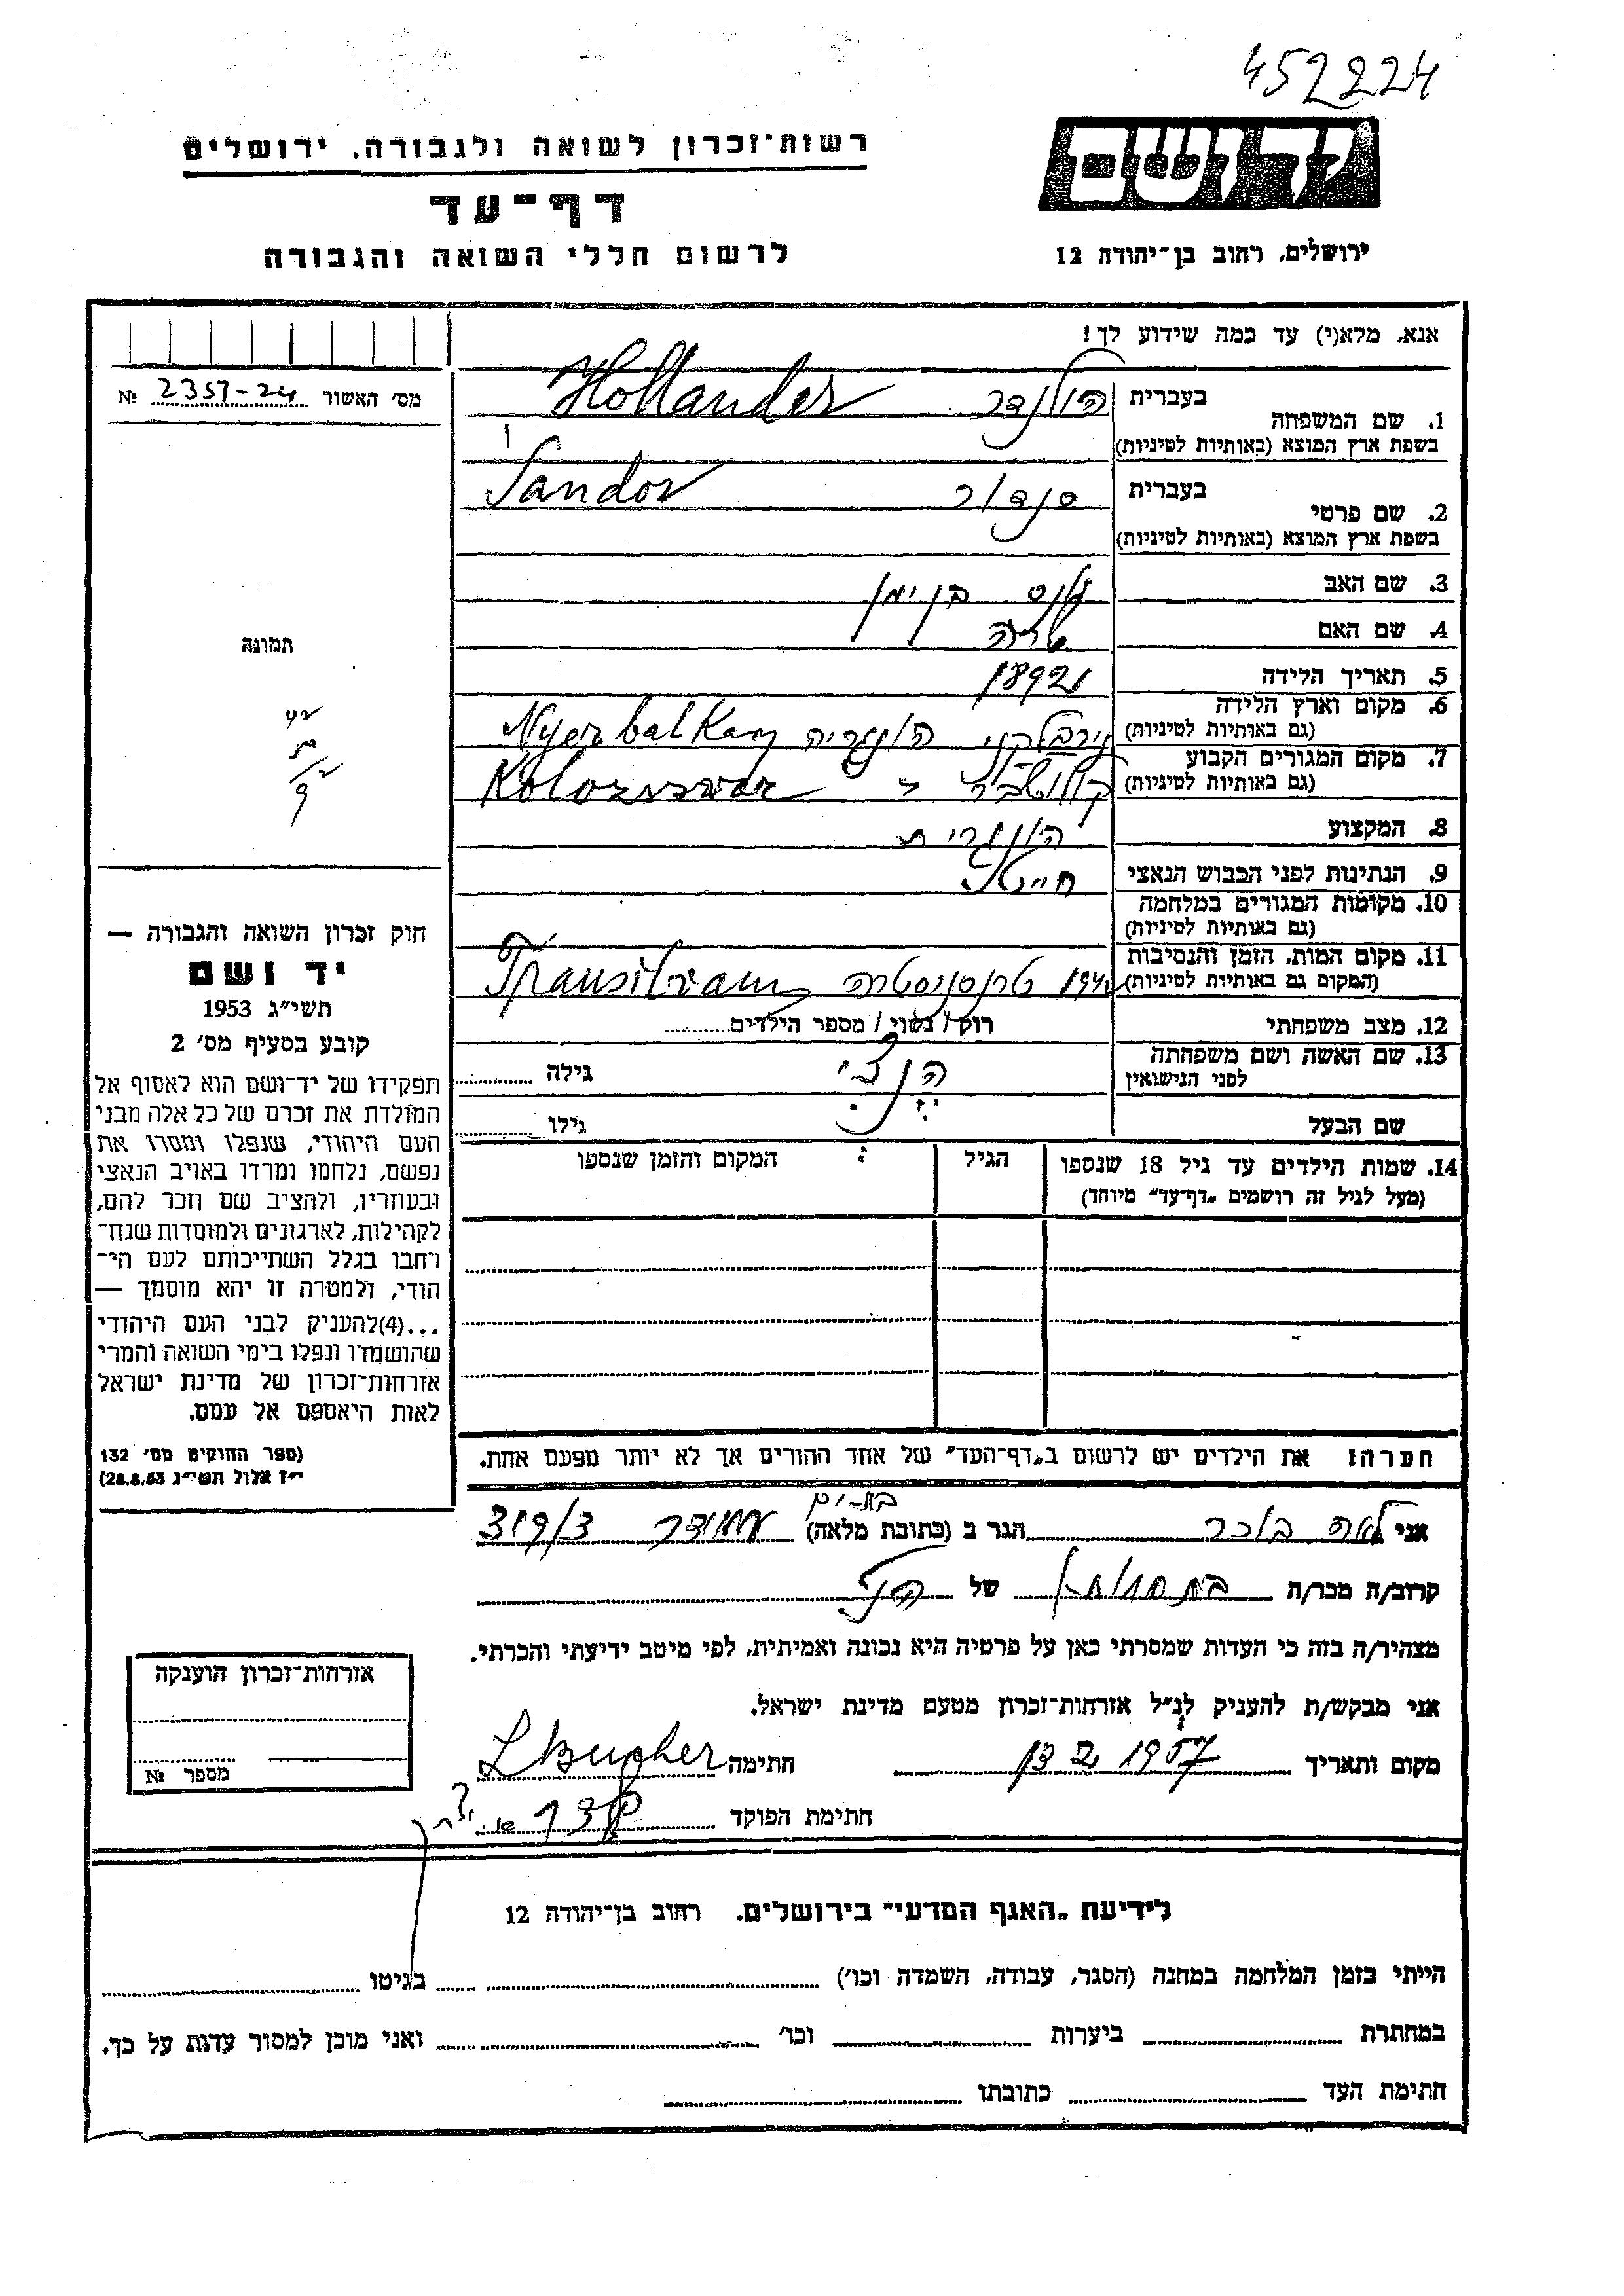 452224
ידושם
רשות־זכרון לשואה ולגבורה, ירושלים
דף־עד
לרשום חללי השואה והגבורה
ירושלים, רחוב בן־יהודה 12
אנא, מלא(י) עד כמה שידוע לך!
מס׳ האשור 2351-24 №
תמונה
1. שם המשפחה בעברית הולנדר Hollander
בשפת ארץ המוצא (באותיות לטיניות)
2. שם פרטי בעברית סנדור Sandor
בשפת ארץ המוצא (באותיות לטיניות)
3. שם האב בן ימין
4. שם האם שרה
5. תאריך הלידה 1892
6. מקום וארץ הלידה
(גם באותיות לטיניות) נירבלקני הונגריה Nyerbalkany
7. מקום המגורים הקבוע
(גם באותיות לטיניות) Kolozsvar
8. המקצוע הונגרית
9. הנתינות לפני הכבוש הנאצי
10. מקומות המגורים במלחמה
(גם באותיות לטיניות)
11. מקום המות, הזמן והנסיבות
(המקום גם באותיות לטיניות) טרנסניסטריה
12. מצב משפחתי רוק / נשוי / מספר הילדים
13. שם האשה ושם משפחתה
לפני הנישואין גילה
שם הבעל גילו
14. שמות הילדים עד גיל 18 שנספו הגיל המקום והזמן שנספו
(מעל לגיל זה רושמים „דף־עד״ מיוחד)
חוק זכרון השואה והגבורה —
יד ושם
תשי״ג 1953
קובע בסעיף מס׳ 2
תפקידו של יד־ושם הוא לאסוף אל
המולדת את זכרם של כל אלה מבני
העם היהודי, שנפלו ומסרו את
נפשם, נלחמו ומרדו באויב הנאצי
ובעוזריו, ולהציב שם וזכר להם,
לקהילות, לארגונים ולמוסדות שנח־
רחבו בגלל השתייכותם לעם הי־
הודי, ולמטרה זו יהא מוסמך —
...(4)להעניק לבני העם היהודי
שהושמדו ונפלו בימי השואה והמרי
אזרחות־זכרון של מדינת ישראל
לאות היאספם אל עמם.
(ספר החוקים מס׳ 132
י״ז אלול תשי״ג 28.8.53)
הערה: את הילדים יש לרשום ב„דף־העד״ של אחד ההורים אך לא יותר מפעם אחת.
אני לאה בוכר הגר ב (כתובת מלאה) 319/3
קרוב/ה מכר/ה של
מצהיר/ה בזה כי העדות שמסרתי כאן על פרטיה היא נכונה ואמיתית, לפי מיטב ידיעתי והכרתי.
אני מבקש/ת להעניק לנ״ל אזרחות־זכרון מטעם מדינת ישראל.
מקום ותאריך 1957 חתימה L Bucher
חתימת הפוקד
אזרחות־זכרון הוענקה
מספר №
לידיעת „האגף המדעי״ בירושלים, רחוב בן־יהודה 12
הייתי בזמן המלחמה במחנה (הסגר, עבודה, השמדה וכו׳) בגיטו
במחתרת ביערות וכו׳ ואני מוכן למסור עדות על כך.
חתימת העד כתובתו